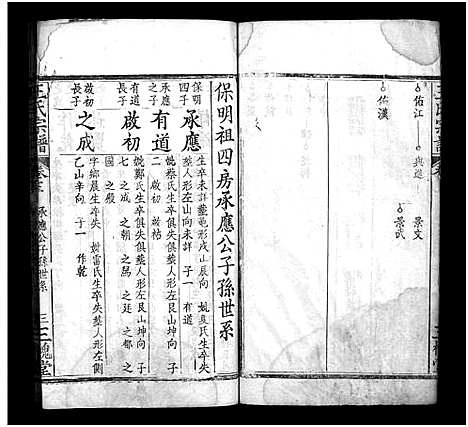 佑江 興進 景文
景武
佑漢
保明祖四房承應公子孫世系
保明四子 承應 生卒未詳葬龜形戌山辰向 姚袁氏生卒失
葬人形左山向未詳 子一 有道
承應之子 有道 姚蔡氏生卒俱失俱葬人形左艮山坤向 子
二 啟初 啟祐
有道長子 啟初 姚鄭氏生卒俱失俱葬人形左艮山坤向 子
七 之成 之朝 之爲 之廷 之
國 之殿
啟初長子 之成 字鄉晨生卒失 姚雷氏生卒失葬人形左
乙山辛向 子一 作乾
王氏宗譜 承應公子孫世系 三槐堂